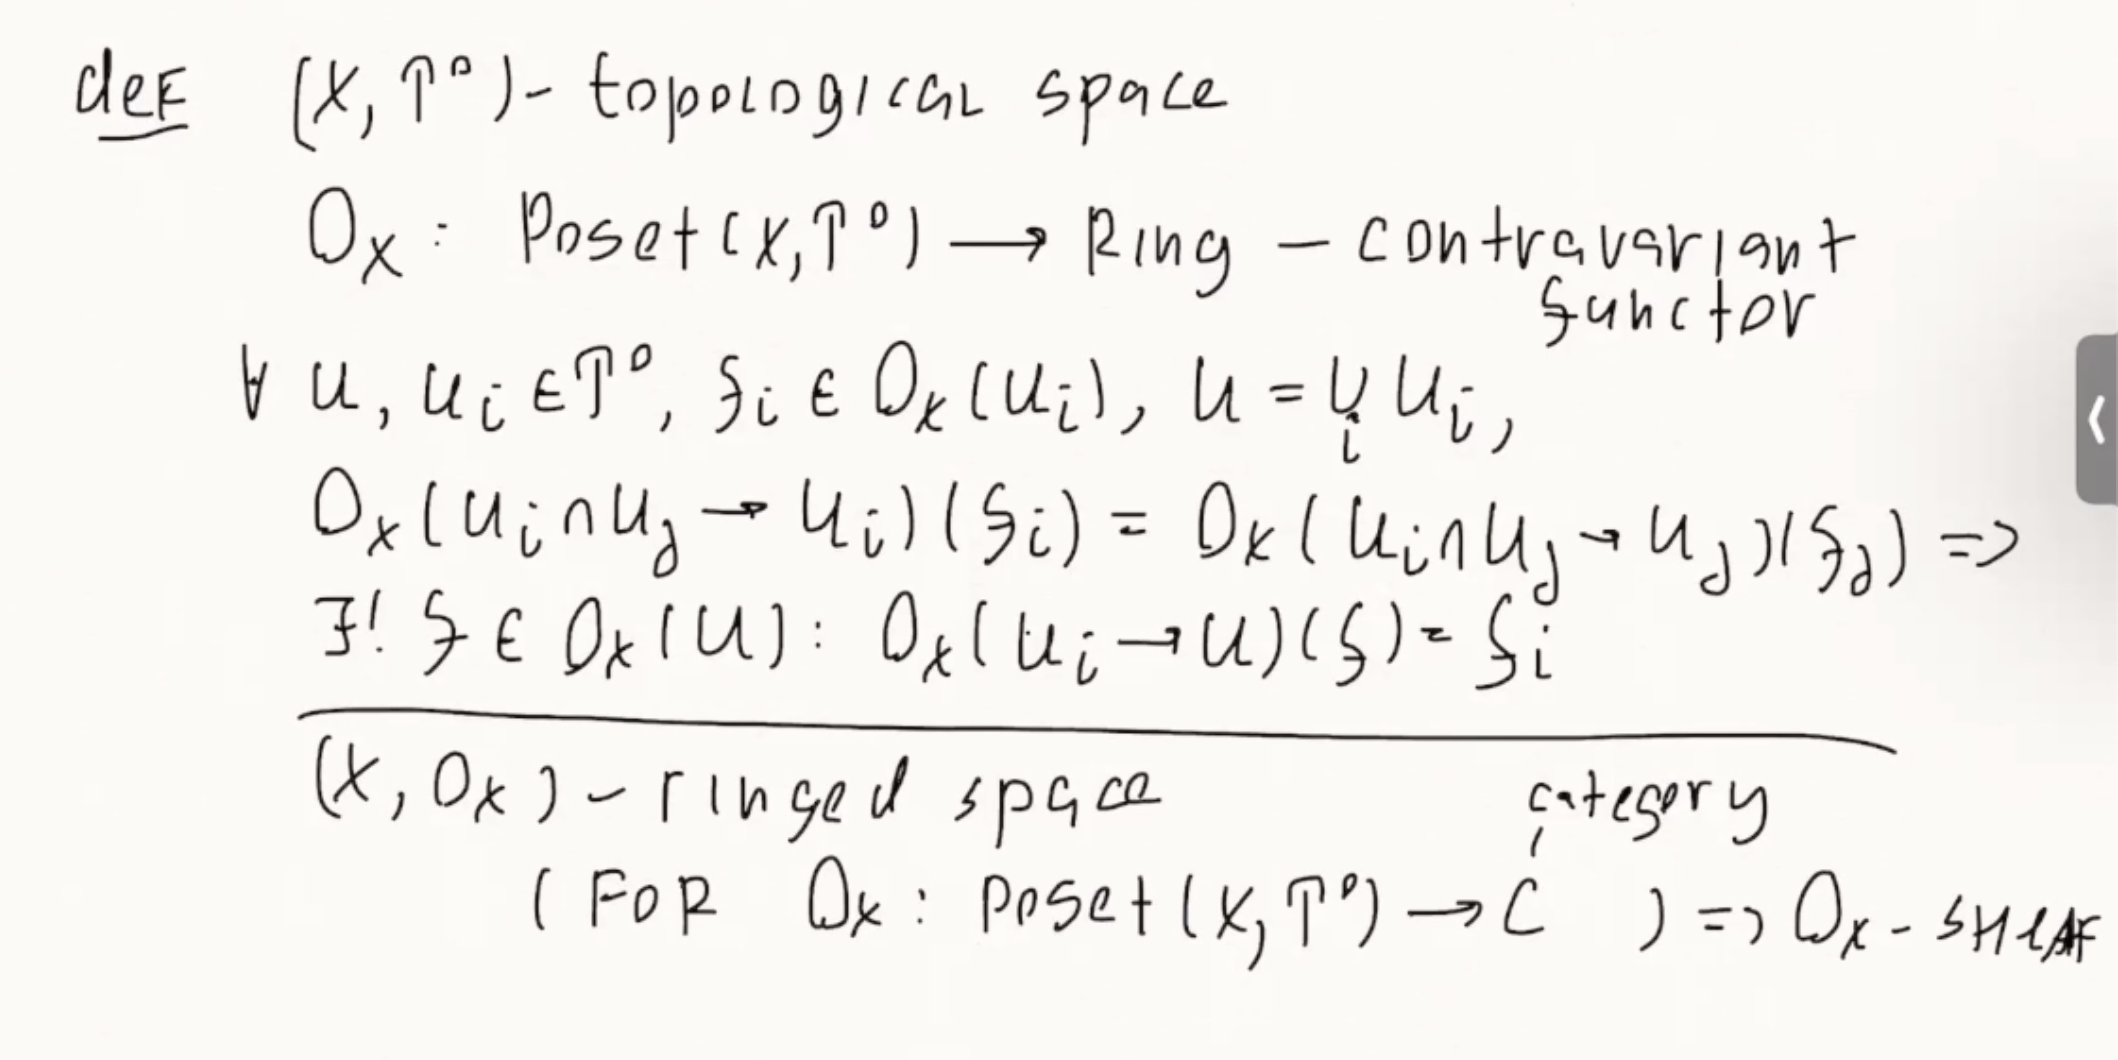 def (X, T°) - topological space
O_X : Poset(X, T°) → Ring - contravariant
functor
∀ U, U_i ∈ T°, f_i ∈ O_X(U_i), U = ∪_i U_i,
O_X(U_i ∩ U_j → U_i)(f_i) = O_X(U_i ∩ U_j → U_j)(f_j) =>
∃! f ∈ O_X(U) : O_X(U_i → U)(f) = f_i
(X, O_X) - ringed space
category
(FOR O_X : Poset(X, T°) → C ) => O_X - SHEAF